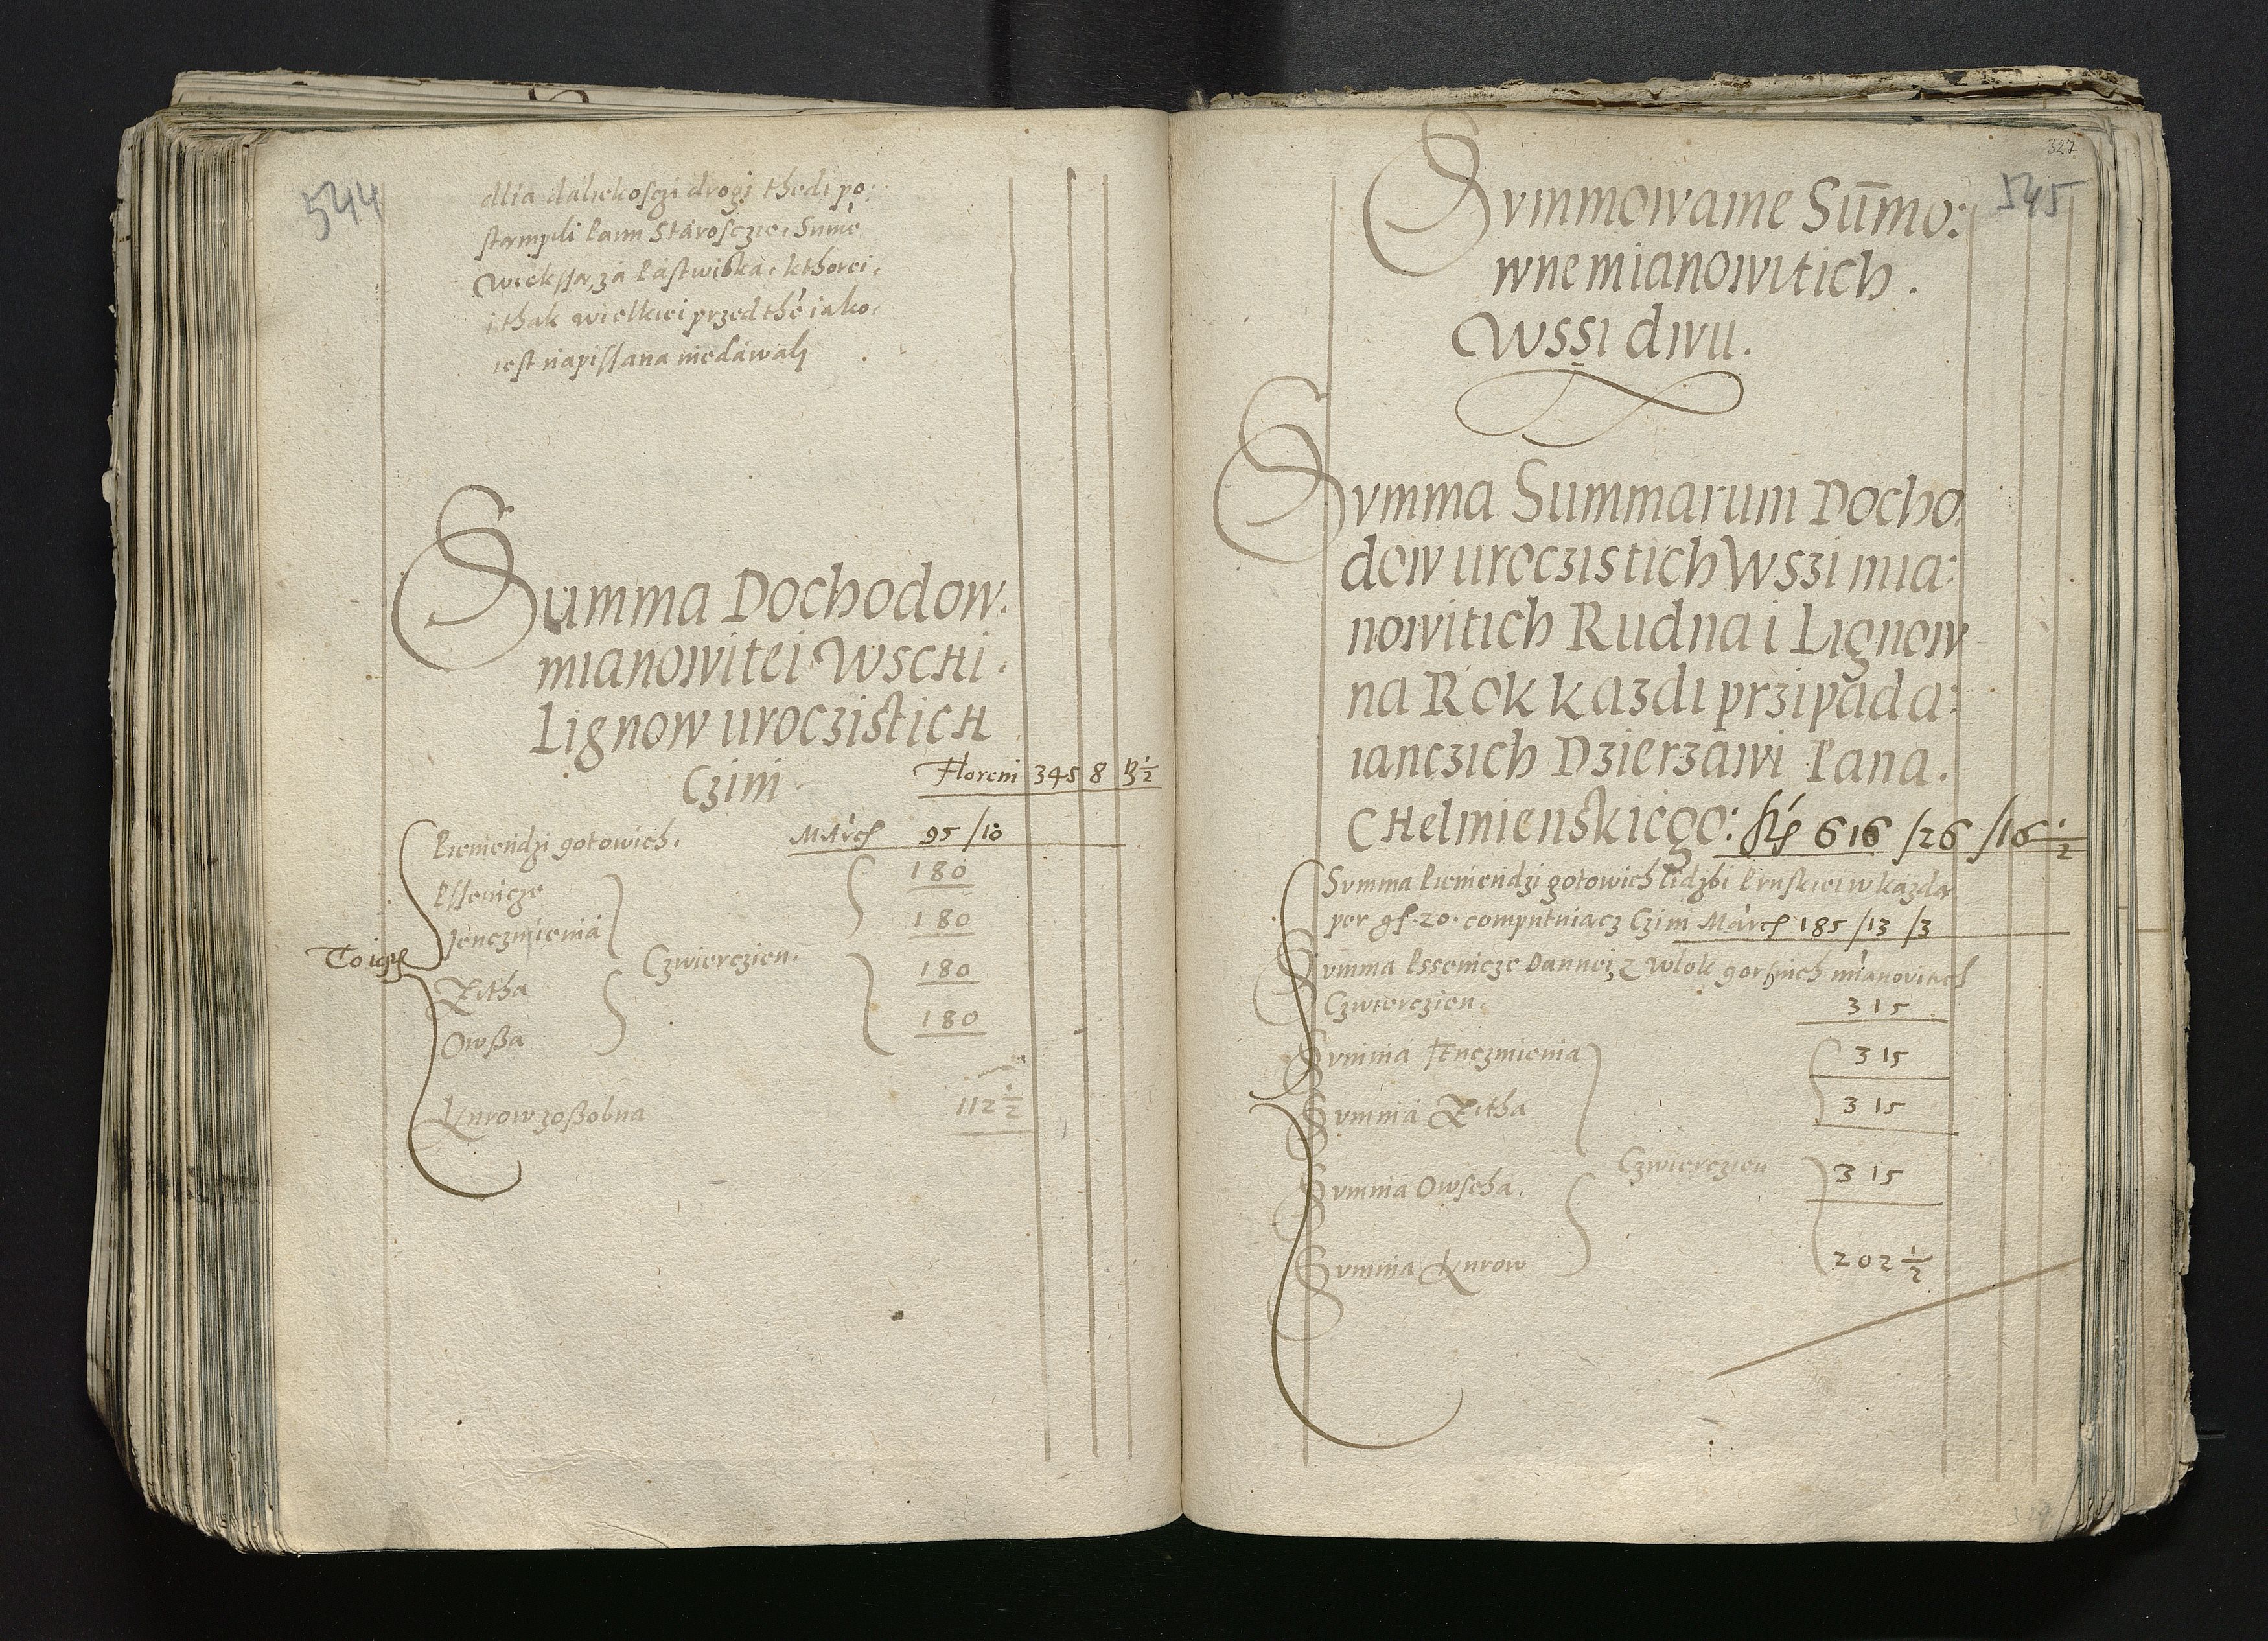 544
dlia daliekosczi drogi thedi po:
stampili Pann Starosczie, Sume
Wieksza, za Pastwiska, kthorei,
i thak wielkiei przed the iako,
iest napissana niedawali
Summa Dochodow.
mianowitei Wschi.
Lignow uroczistich
Czini
Floreni 345 8 13 1/2
Pieniendzi gotowich. March 95 /10
Pssenicze 180
Jenczmienia 180
To iest Czwierczien.
Zitha 180
Owßa 180
Kurow zoßobna 112 1/2
327
545
Summowanie Sum̄o:
wne mianowitich.
Wsſi dwu.
Summa Summarum Docho:
dow uroczistich Wszi mia:
nowitich Rudna i Lignow
na Rok kazdi przipada:
ianczich Dzierzawi Pana.
CHelmienskiego: fl 616 /26 /16 1/2
Summa Pieniendzi gotowich lidzbi Pruskiei w kazda
per gs. 20. computuiacz Czini March 185 /13 /3
Summa Pssenicze Dannei z Wlok gorsnich mianovitich
Czwierczien. 315
Summa Jenczmienia 315
Summa Zitha 315
Czwierczien
Summa Owscha. 315
Summa Kurow 202 1/2